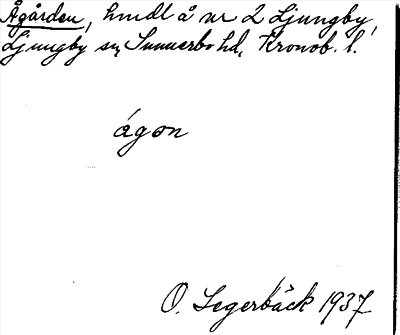 Ågården, hmdl å nr 2 Ljungby,
Ljungby sn, Sunnerbo hd, Kronob. l.
ágon
O. Segerbäck 1937